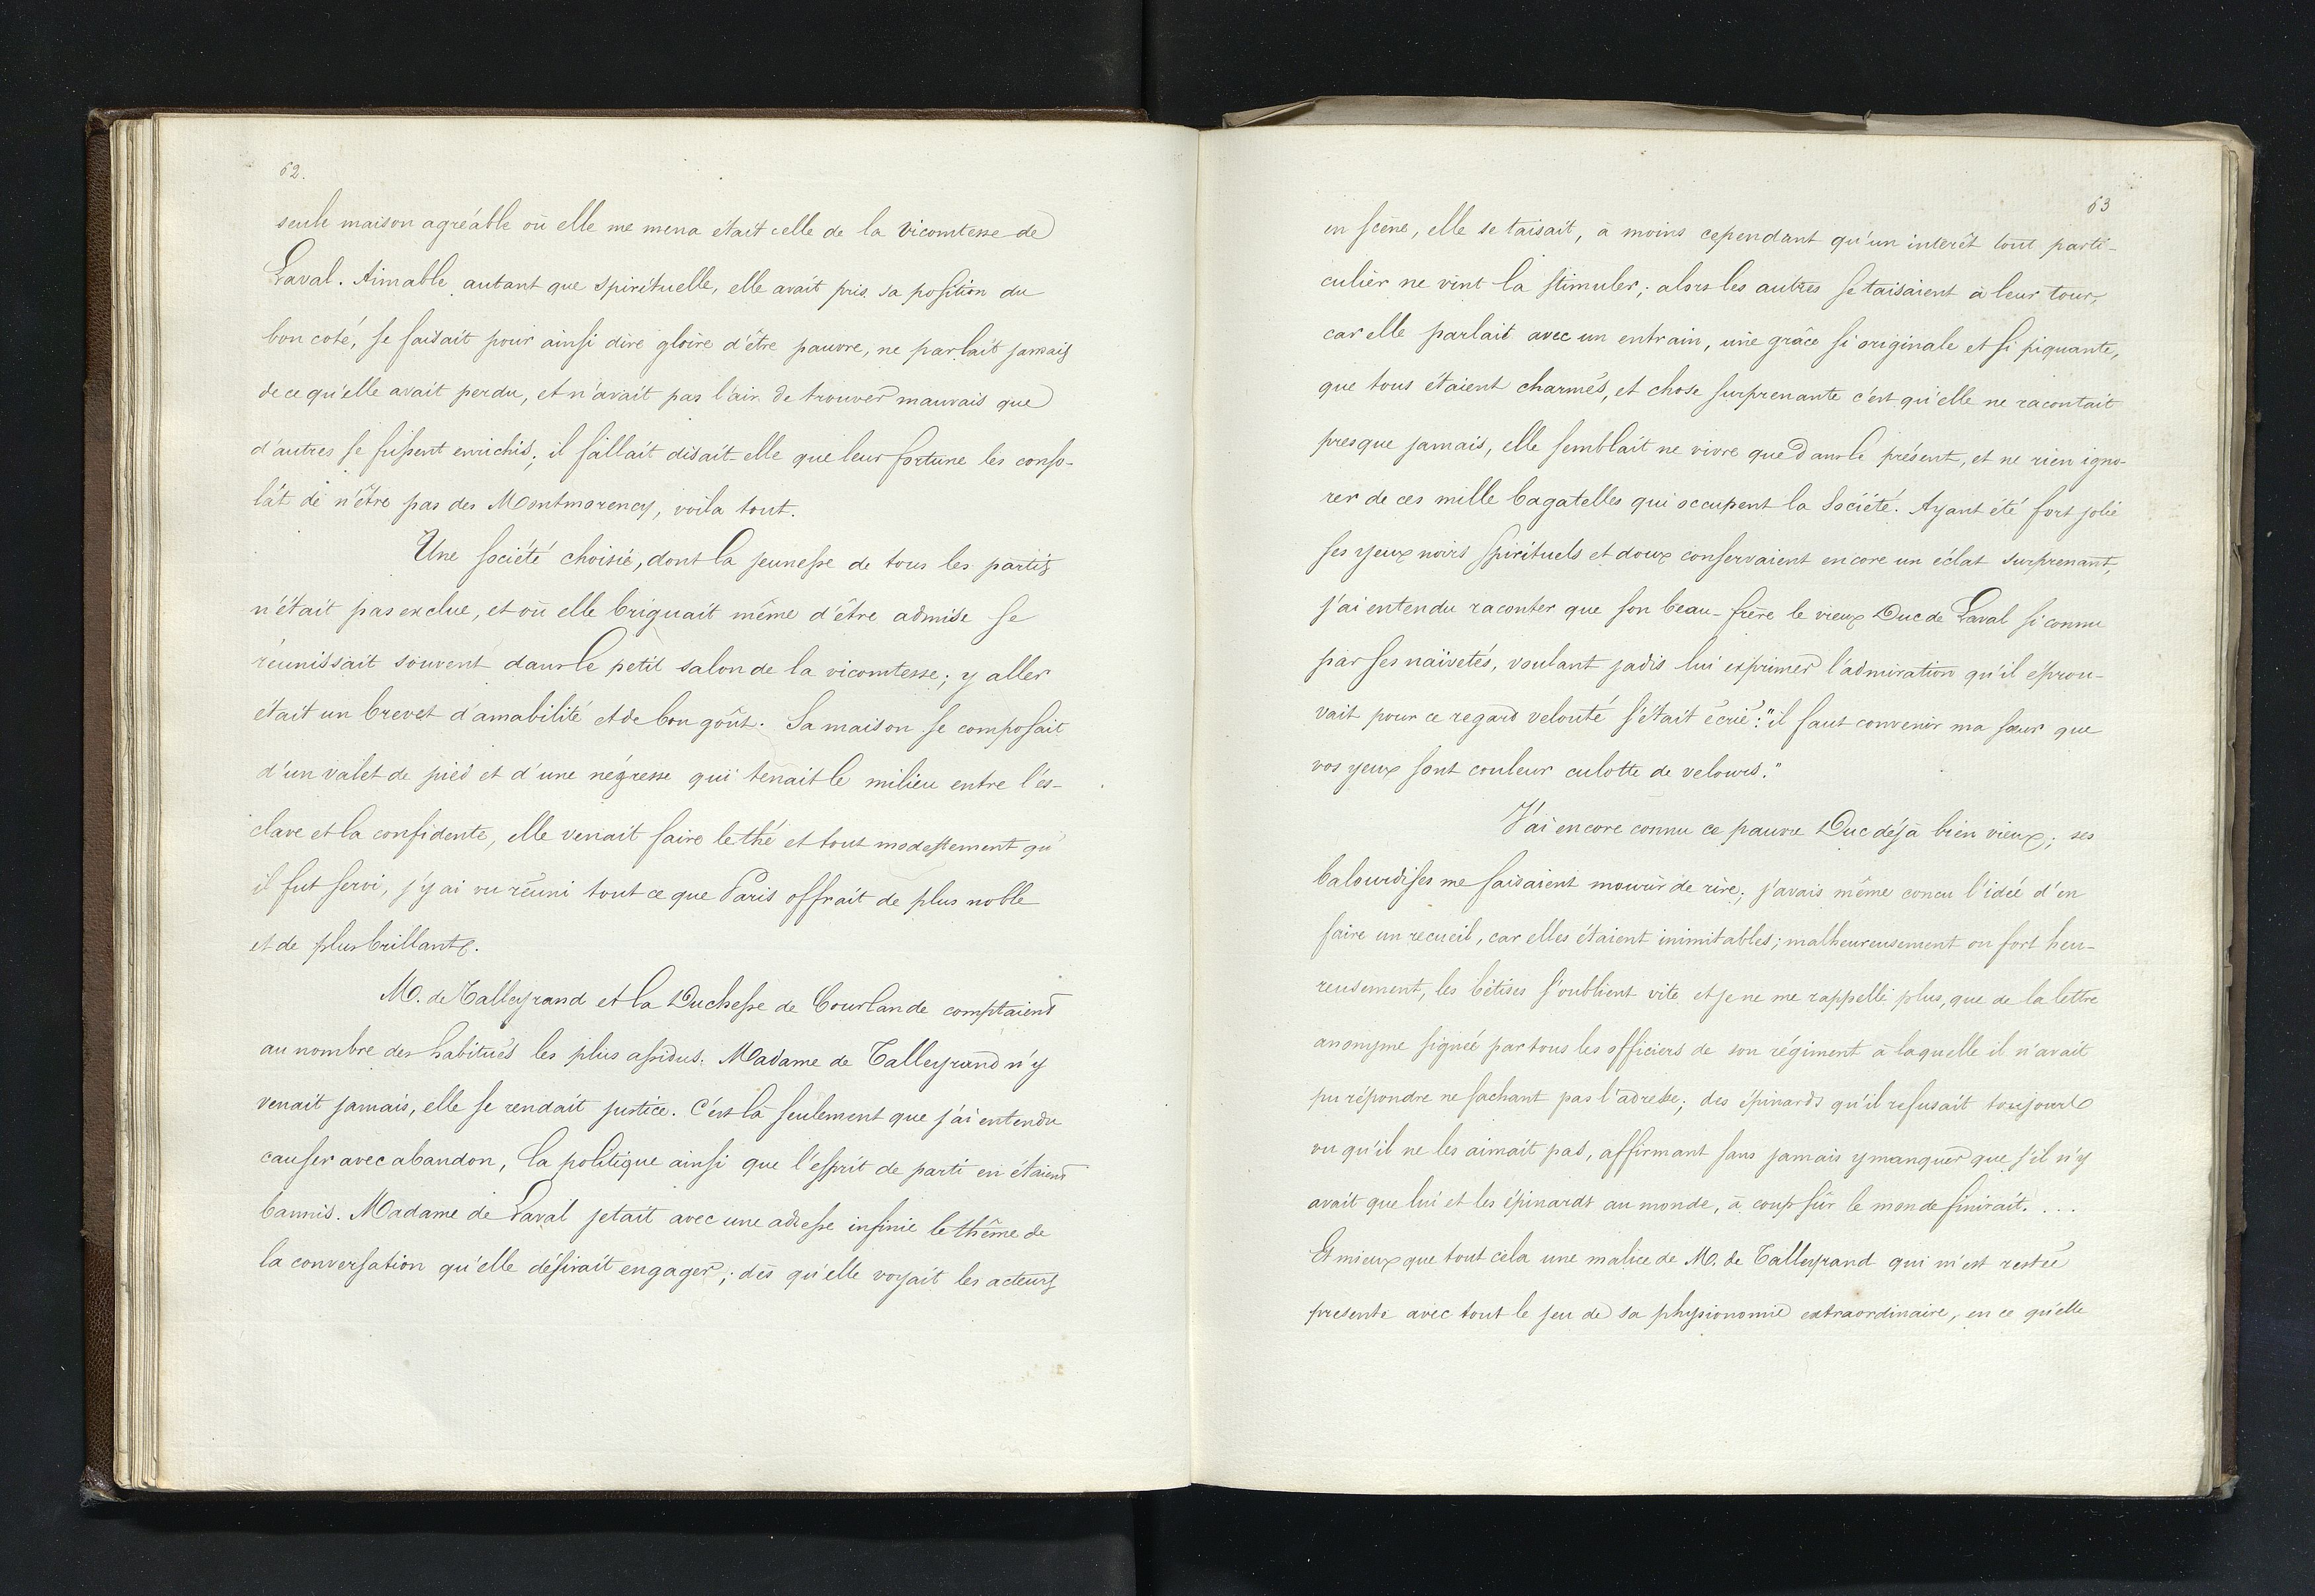 62.
seule maison agréable où elle me mena était celle de la vicomtesse de
Laval. Aimable autant que spirituelle, elle avait pris sa position du
bon coté, se faisait pour ainsi dire gloire d'être pauvre, ne parlait jamais
de ce qu'elle avait perdu, et n'avait pas l'air de trouver mauvais que
d'autres se fussent enrichis; il fallait disait-elle que leur fortune les conso-
lât de n'être pas des Montmorency, voila tout.
Une société choisie, dont la jeunesse de tous les partis
n'était pas exclue, et où elle briguait même d'être admise se
réunissait souvent dans le petit salon de la vicomtesse; y aller
était un brevet d'amabilité et de bon goût. Sa maison se composait
d'un valet de pied et d'une négresse qui tenait le milieu entre l'es-
clave et la confidente, elle venait faire le thé et tout modestement qu'
il fut servi, j'y ai vu réuni tout ce que Paris offrait de plus noble
et de plus brillant.
M. de Talleyrand et la Duchesse de Courlande comptaient
au nombre des habitués les plus assidus. Madame de Talleyrand n'y
venait jamais, elle se rendait justice. C'est là seulement que j'ai entendu
causer avec abandon, la politique ainsi que l'esprit de parti en étaient
bannis. Madame de Laval jetait avec une adresse infinie le thême de
la conversation qu'elle désirait engager; dès qu'elle voyait les acteurs
63
en scène, elle se taisait, à moins cependant qu'un interêt tout parti-
culier ne vint la stimuler; alors les autres se taisaient à leur tour,
car elle parlait avec un entrain, une grâce si originale et si piquante,
que tous étaient charmés, et chose surprenante c'est qu'elle ne racontait
presque jamais, elle semblait ne vivre que dans le présent, et ne rien igno-
rer de ces mille bagatelles qui occupent la Société. Ayant été fort jolie
ses yeux noirs spirituels et doux conservaient encore un éclat surprenant,
j'ai entendu raconter que son beau-frère le vieux Duc de Laval si connu
par ses naïvetés, voulant jadis lui exprimer l'admiration qu'il éprou-
vait pour ce regard velouté s'était écrié: "il faut convenir ma sœur que
vos yeux sont couleur culotte de velours."
J'ai encore connu ce pauvre Duc déjà bien vieux; ses
balourdises me faisaient mourir de rire; j'avais même concu l'idée d'en
faire un recueil, car elles étaient inimitables; malheureusement ou fort heu-
reusement, les bêtises s'oublient vite et je ne me rappelle plus, que de la lettre
anonyme signée par tous les officiers de son régiment à laquelle il n'avait
pu répondre ne sachant pas l'adresse; des épinards qu'il refusait toujours
vu qu'il ne les aimait pas, affirmant sans jamais y manquer que s'il n'y
avait que lui et les épinards au monde, à coup sûr le monde finirait. . . .
Et mieux que tout cela une malice de M. de Talleyrand qui m'est restée
presente avec tout le jeu de sa physionomie extraordinaire, en ce qu'elle